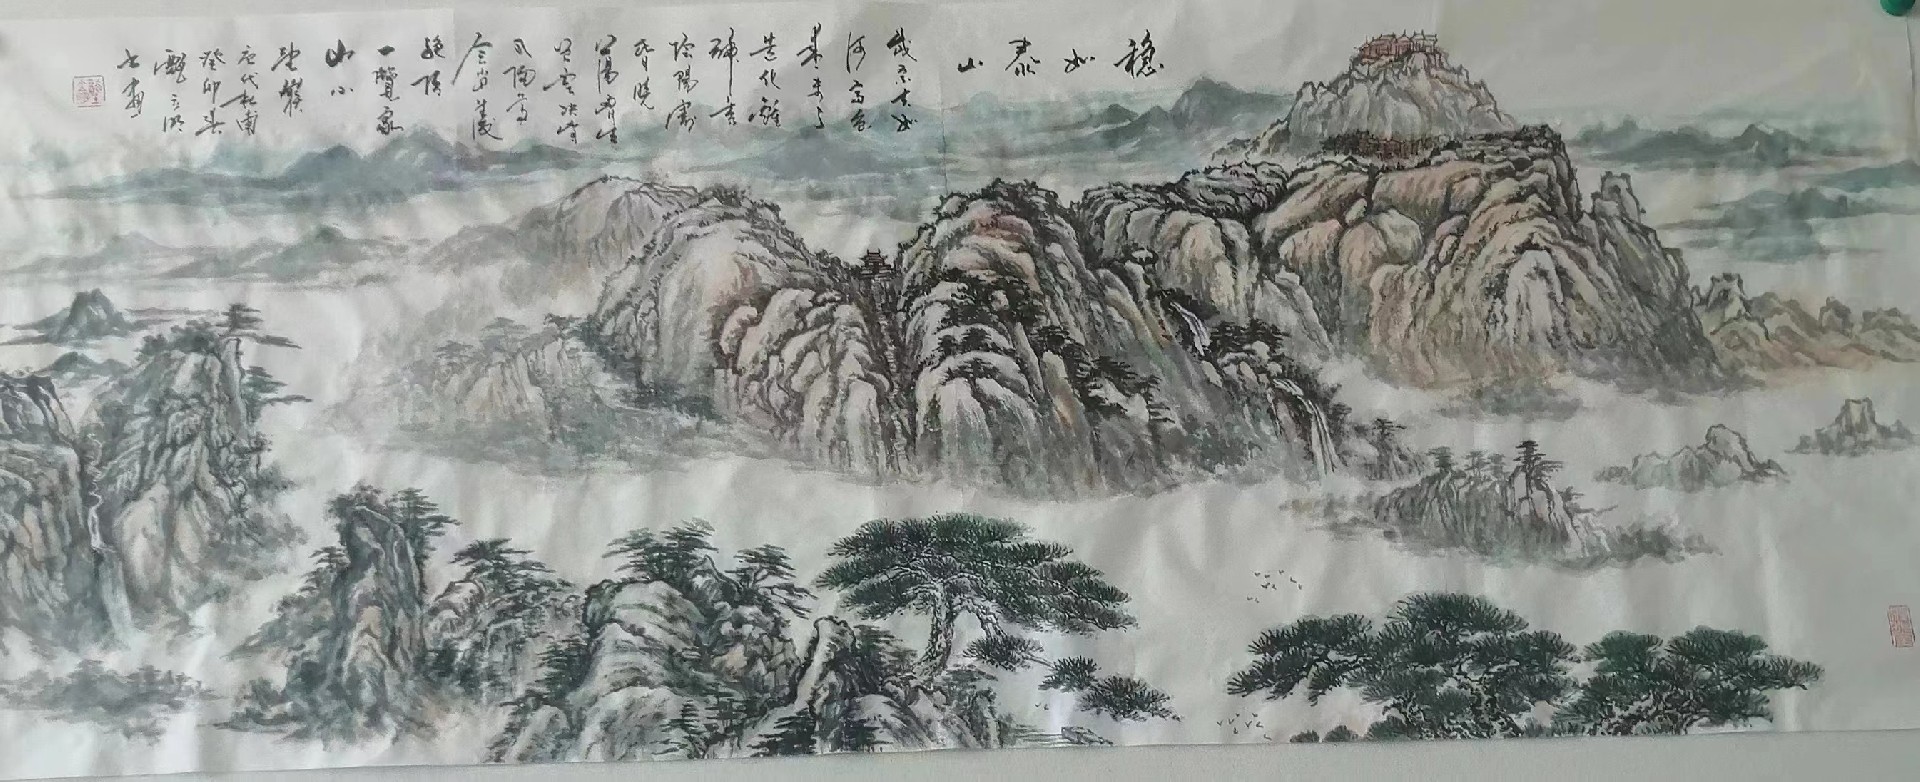 穩如泰山
岱宗夫如
何齊魯
青未了
造化鍾
神秀
陰陽割
昏曉
蕩胸生
層雲決眥
入歸鳥
會當凌
絕頂
一覽眾
山小
望嶽
唐代杜甫
癸卯年